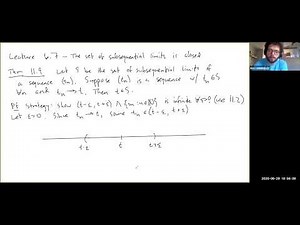 Lecture 6.7 - The set of subsequential limits is closed
Thm 11.9 Let S be the set of subsequential limits of
a sequence (sn). Suppose (tn) is a sequence w/ tn ∈ S
∀n and tn → t. Then t ∈ S.
Pf Strategy: show (t-ε, t+ε) ∩ {sn : n∈N} is infinite ∀ε>0 (use 11.2)
Let ε>0. Since tn → t, some tn ∈ (t-ε, t+ε)
t-ε t t+ε